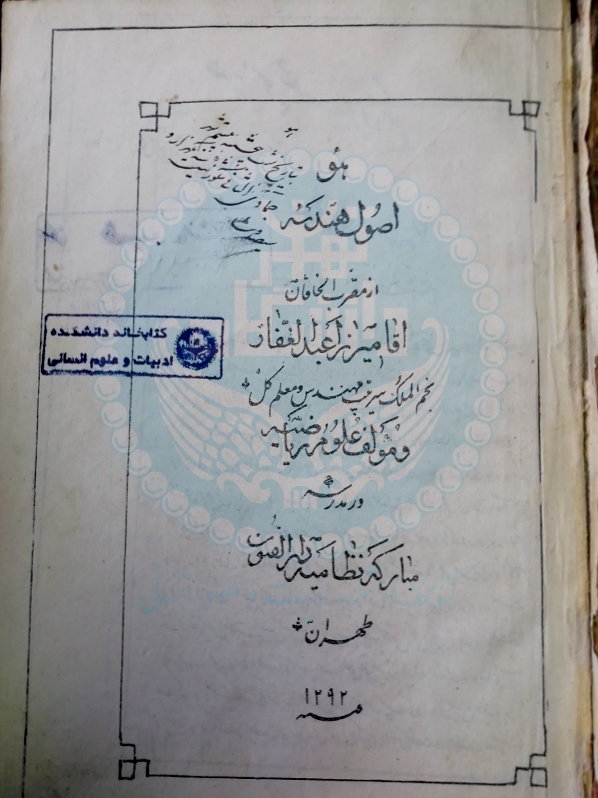 هو
اصول هندسه
از مقرب الخاقان
اقا میرزا عبدالغفار
نجم الملک سرتیپ مهندس و معلم کل
و مؤلف علوم ریاضیه
در مدرسه
مبارکه نظامیه دارالفنون
طهران
سنه ۱۲۹۲
کتابخانه دانشکده
ادبیات و علوم انسانی